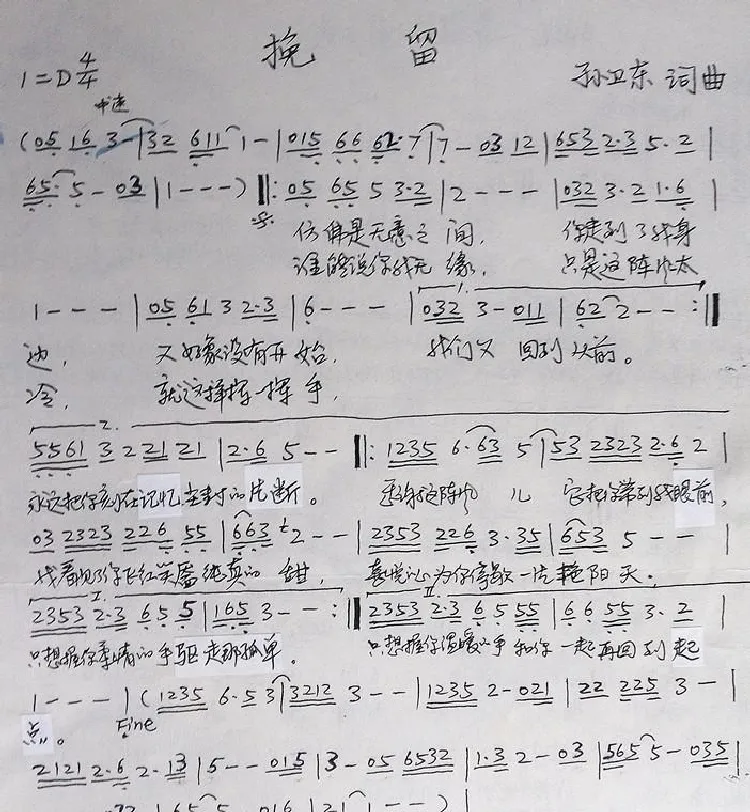 挽 留
1=D 4/4
孙卫东 词曲
中速
(05 16 3-|32 611 1-|015 66 62·7|7-03 12|653 2·3 5·2|
65·5-03|1---)‖:05 65 5 3·2|2---|032 3·2 1·6|
仿佛是无意之间, 你走到了我身
谁能说你我无缘, 只是这阵风太
1---|05 61 3 2·3|6---|032 3-011|62 2--:‖
1.
边, 又好象没有开始, 我们又回到从前。
冷, 就这样挥一挥手,
2.
5561 3 2 21 21|2·6 5--‖:1235 6·63 5|53 2323 2·6 2|
永远把你刻在记忆尘封的片断。 感谢这阵风儿 它把你带到我眼前,
03 2323 226 55|663 2--|2353 226 3·35|653 5--|
我看见了你飞红笑靥纯真的甜, 喜悦心为你停歇一片艳阳天。
I. II.
2353 2·3 6 5 5|165 3--:‖2353 2·3 6 5 55|6 6 55 3·2|
只想握你柔情的手驱走那孤单。 只想握你温暖小手和你一起再回到起
1---|(1235 6·5 3|3212 3--|1235 2-021|22 225 3-|
点。 Fine
2121 2·6 2·13|5--015|3-05 6532|1·3 2-03|565 5-035|